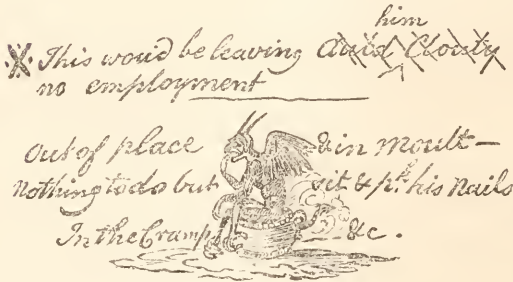 him
※ This would be leaving Auld Clouty
no employment
Out of place & in moult —
nothing to do but sit & pk his nails
In the Cramp &c.